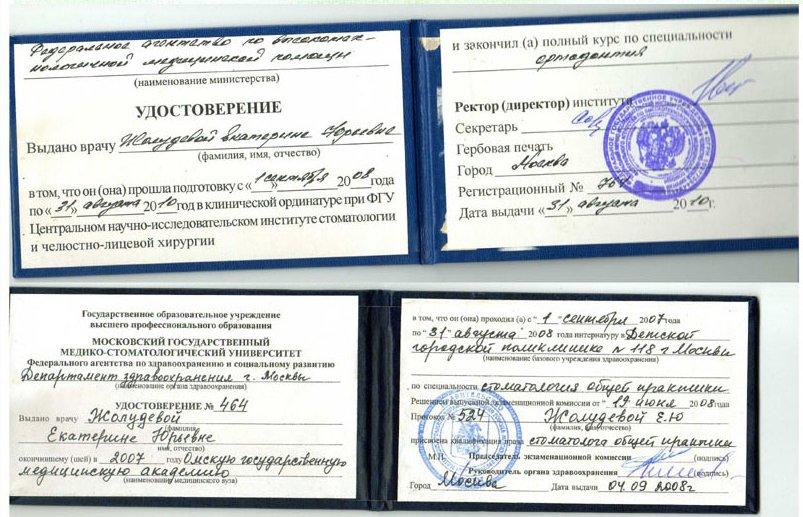 Федеральное агентство по высокотех-
нологичной медицинской помощи
(наименование министерства)
УДОСТОВЕРЕНИЕ
Выдано врачу Жолудевой Екатерине Юрьевне
(фамилия, имя, отчество)
в том, что он (она) прошла подготовку с «1 сентября 2008 года
по «31» августа 2010 год в клинической ординатуре при ФГУ
Центральном научно-исследовательском институте стоматологии
и челюстно-лицевой хирургии
и закончил (а) полный курс по специальности
ортодонтия
Ректор (директор) института
Секретарь
Гербовая печать
Город Москва
Регистрационный №
Дата выдачи «31» августа 2010г.
Государственное образовательное учреждение
высшего профессионального образования
МОСКОВСКИЙ ГОСУДАРСТВЕННЫЙ
МЕДИКО-СТОМАТОЛОГИЧЕСКИЙ УНИВЕРСИТЕТ
Федерального агентства по здравоохранению и социальному развитию
Департамент здравоохранения г. Москвы
(наименование органа здравоохранения)
УДОСТОВЕРЕНИЕ № 464
Выдано врачу Жолудевой
(фамилия)
Екатерине Юрьевне
(имя, отчество)
окончившему (шей) в 2007 году Омскую государственную
медицинскую академию
(наименование медицинского вуза)
в том, что он (она) проходил(а) с "1" сентября 2007 года
по "31" августа 2008 года интернатуру в Детской
городской поликлинике № 118 г Москвы
(наименование базового учреждения здравоохранения)
по специальности стоматология общей практики
Решением выпускной экзаменационной комиссии от "19 июня 2008 года
Протокол № 524 Жолудевой Е.Ю
(фамилия, имя, отчество)
присвоена квалификация врача стоматолога общей практики
М.П. Председатель экзаменационной комиссии (подпись)
Руководитель органа здравоохранения (подпись)
Город Москва Дата выдачи 04.09 2008г